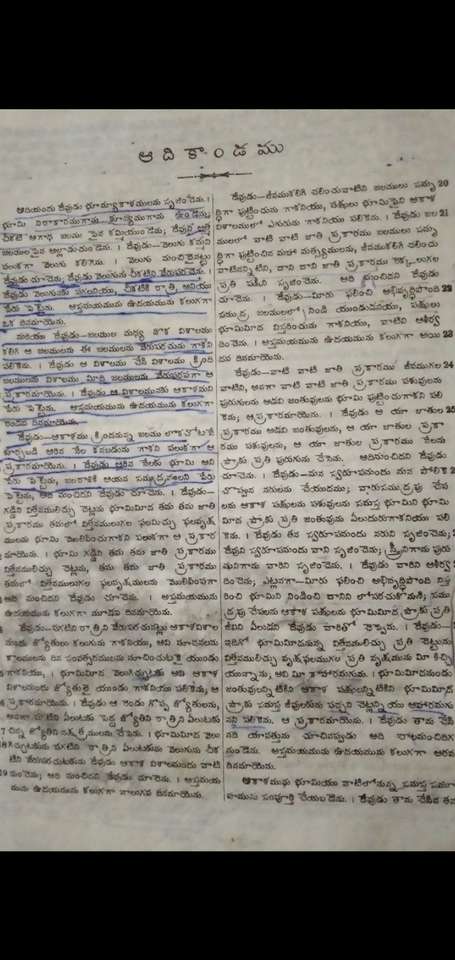 ఆదికాండము
ఆదియందు దేవుడు భూమ్యాకాశములను సృజించెను.
భూమి నిరాకారముగాను శూన్యముగాను ఉండెను;
చీకటి అగాధ జలము పైన కమ్మియుండెను; దేవుని ఆత్మ
జలములపైన అల్లాడుచుండెను. । దేవుడు—వెలుగు కమ్మని
పలుకగా వెలుగు కలిగెను. । వెలుగు మంచిదైనట్టు
దేవుడు చూచెను; దేవుడు వెలుగును చీకటిని వేరుపరచెను.
దేవుడు వెలుగునకు పగలనియు, చీకటికి రాత్రి అనియు
పేరు పెట్టెను. అస్తమయమును ఉదయమును కలుగగా
ఒక దినమాయెను.
మరియు దేవుడు—జలముల మధ్య నొక విశాలము
కలిగి ఆ జలములను ఈ జలములను వేరుపరచును గాకని
పలికెను. । దేవుడు ఆ విశాలము చేసి విశాలము క్రింది
జలములను విశాలము మీది జలములను వేరుపరపగా ఆ
ప్రకారమాయెను. । దేవుడు ఆ విశాలమునకు ఆకాశమని
పేరు పెట్టెను. అస్తమయమును ఉదయమును కలుగగా
రెండవ దినమాయెను.
దేవుడు—ఆకాశము క్రిందనున్న జలము లొకచోటనే
కూర్చబడి ఆరిన నేల కనబడును గాకని పలుకగా ఆ
ప్రకారమాయెను. । దేవుడు ఆరిన నేలకు భూమి అని
పేరు పెట్టెను, జలరాశికి ఆయన సముద్రములని పేరు
పెట్టెను, అది మంచిదని దేవుడు చూచెను. । దేవుడు—
గడ్డిని విత్తనములిచ్చు చెట్లను భూమిమీద తమ తమ జాతి
ప్రకారము తమలో విత్తనములుగల ఫలమిచ్చు ఫలవృక్ష
ములను భూమి మొలిపించుగాకని పలుకగా ఆ ప్రకార
మాయెను. । భూమి గడ్డిని తమ తమ జాతి ప్రకారము
విత్తనములిచ్చు చెట్లను, తమ తమ జాతి ప్రకారము
తమలో విత్తనములుగల ఫలవృక్షములను మొలిపింపగా
అది మంచిదని దేవుడు చూచెను. । అస్తమయమును
ఉదయమును కలుగగా మూడవ దినమాయెను.
దేవుడు—పగటిని రాత్రిని వేరుపరచునట్లు ఆకాశవిశాల
మందు జ్యోతులు కలుగును గాకనియు, అవి సూచనలను
కాలములను దిన సంవత్సరములను సూచించుటకై యుండు
గాకనియు, । భూమిమీద వెలుగిచ్చుటకు అవి ఆకాశ
విశాలమందు జ్యోతులై యుండు గాకనియు పలికెను, ఆ
ప్రకారమాయెను. । దేవుడు ఆ రెండు గొప్ప జ్యోతులను,
అనగా పగటిని ఏలుటకు పెద్ద జ్యోతిని రాత్రిని ఏలుటకు
17 చిన్న జ్యోతిని నక్షత్రములను చేసెను. । భూమిమీద వెలు
18 గిచ్చుటకును పగటిని రాత్రిని ఏలుటకును వెలుగును చీక
టిని వేరుపరచుటకును దేవుడు ఆకాశ విశాలమందు వాటి
19 నుంచెను; అది మంచిదని దేవుడు చూచెను. । అస్తమయ
మును ఉదయమును కలుగగా నాలుగవ దినమాయెను.
దేవుడు—జీవముకలిగి చలించువాటిని జలములు సమృ 20
ద్ధిగా పుట్టించును గాకనియు, పక్షులు భూమిపైని ఆకాశ
విశాలములో ఎగురును గాకనియు పలికెను. । దేవుడు జల 21
ములలో వాటి వాటి జాతి ప్రకారము జలములు సమృ
ద్ధిగా పుట్టించిన మహా మత్స్యములను, జీవముకలిగి చలించు
వాటినన్నిటిని, దాని దాని జాతి ప్రకారము రెక్కలుగల
ప్రతి పక్షిని సృజించెను. అది మంచిదని దేవుడు
చూచెను. । దేవుడు—మీరు ఫలించి అభివృద్ధిపొంది 22
సముద్ర జలములలో నిండి యుండుడనియు, పక్షులు
భూమిమీద విస్తరించును గాకనియు, వాటిని ఆశీర్వ
దించెను. । అస్తమయమును ఉదయమును కలుగగా అయి 23
దవ దినమాయెను.
దేవుడు—వాటి వాటి జాతి ప్రకారము జీవముగల 24
వాటిని, అనగా వాటి వాటి జాతి ప్రకారము పశువులను
పురుగులను అడవి జంతువులను భూమి పుట్టించుగాకని పలి
కెను, ఆప్రకారమాయెను. । దేవుడు ఆ యా జాతుల 25
ప్రకారము అడవి జంతువులను, ఆ యా జాతుల ప్రకా
రము పశువులను, ఆ యా జాతుల ప్రకారము నేలను
ప్రాకు ప్రతి పురుగును చేసెను. అదిమంచిదని దేవుడు
చూచెను. । దేవుడు—మన స్వరూపమందు మన పోలికె 26
చొప్పున నరులను చేయుదము; వారుసముద్రపు చేప
లను ఆకాశ పక్షులను పశువులను సమస్త భూమిని భూమి
మీద ప్రాకు ప్రతి జంతువును ఏలుదురుగాకనియు పలి
కెను. । దేవుడు తన స్వరూపమందు నరుని సృజించెను; 27
దేవుని స్వరూపమందు వాని సృజించెను; స్త్రీనిగాను పురు
షునిగాను వారిని సృజించెను. । దేవుడు వారిని ఆశీర్వ 28
దించెను, ఎట్లనగా—మీరు ఫలించి అభివృద్ధిపొంది విస్త
రించి భూమిని నిండించి దానిని లోపరచుకొనుడి; సము
ద్రపు చేపలను ఆకాశ పక్షులను భూమిమీద ప్రాకు ప్రతి
జీవిని ఏలుడని దేవుడు వారితో చెప్పెను. । దేవుడు— 29
ఇదిగో భూమిమీదనున్న విత్తనములిచ్చు ప్రతి చెట్టును
విత్తనములిచ్చు వృక్షఫలముగల ప్రతి వృక్షమును మీ కిచ్చి
యున్నాను, అవి మీ కాహారమగును. । భూమిమీదనుండు 30
జంతువులన్నిటికిని ఆకాశ పక్షులన్నిటికిని భూమిమీద
ప్రాకు సమస్త జీవులకును పచ్చని చెట్లన్నియు ఆహారమగు
నని పలికెను. ఆ ప్రకారమాయెను. । దేవుడు తాను చేసి 31
నది యావత్తును చూచినప్పుడు అది చాలమంచిదిగ
నుండెను. అస్తమయమును ఉదయమును కలుగగా ఆరవ
దినమాయెను.
ఆకాశమును భూమియు వాటిలోనున్న సమస్త సమూ
హమును సంపూర్తి చేయబడెను. । దేవుడు తాను చేసిన తన